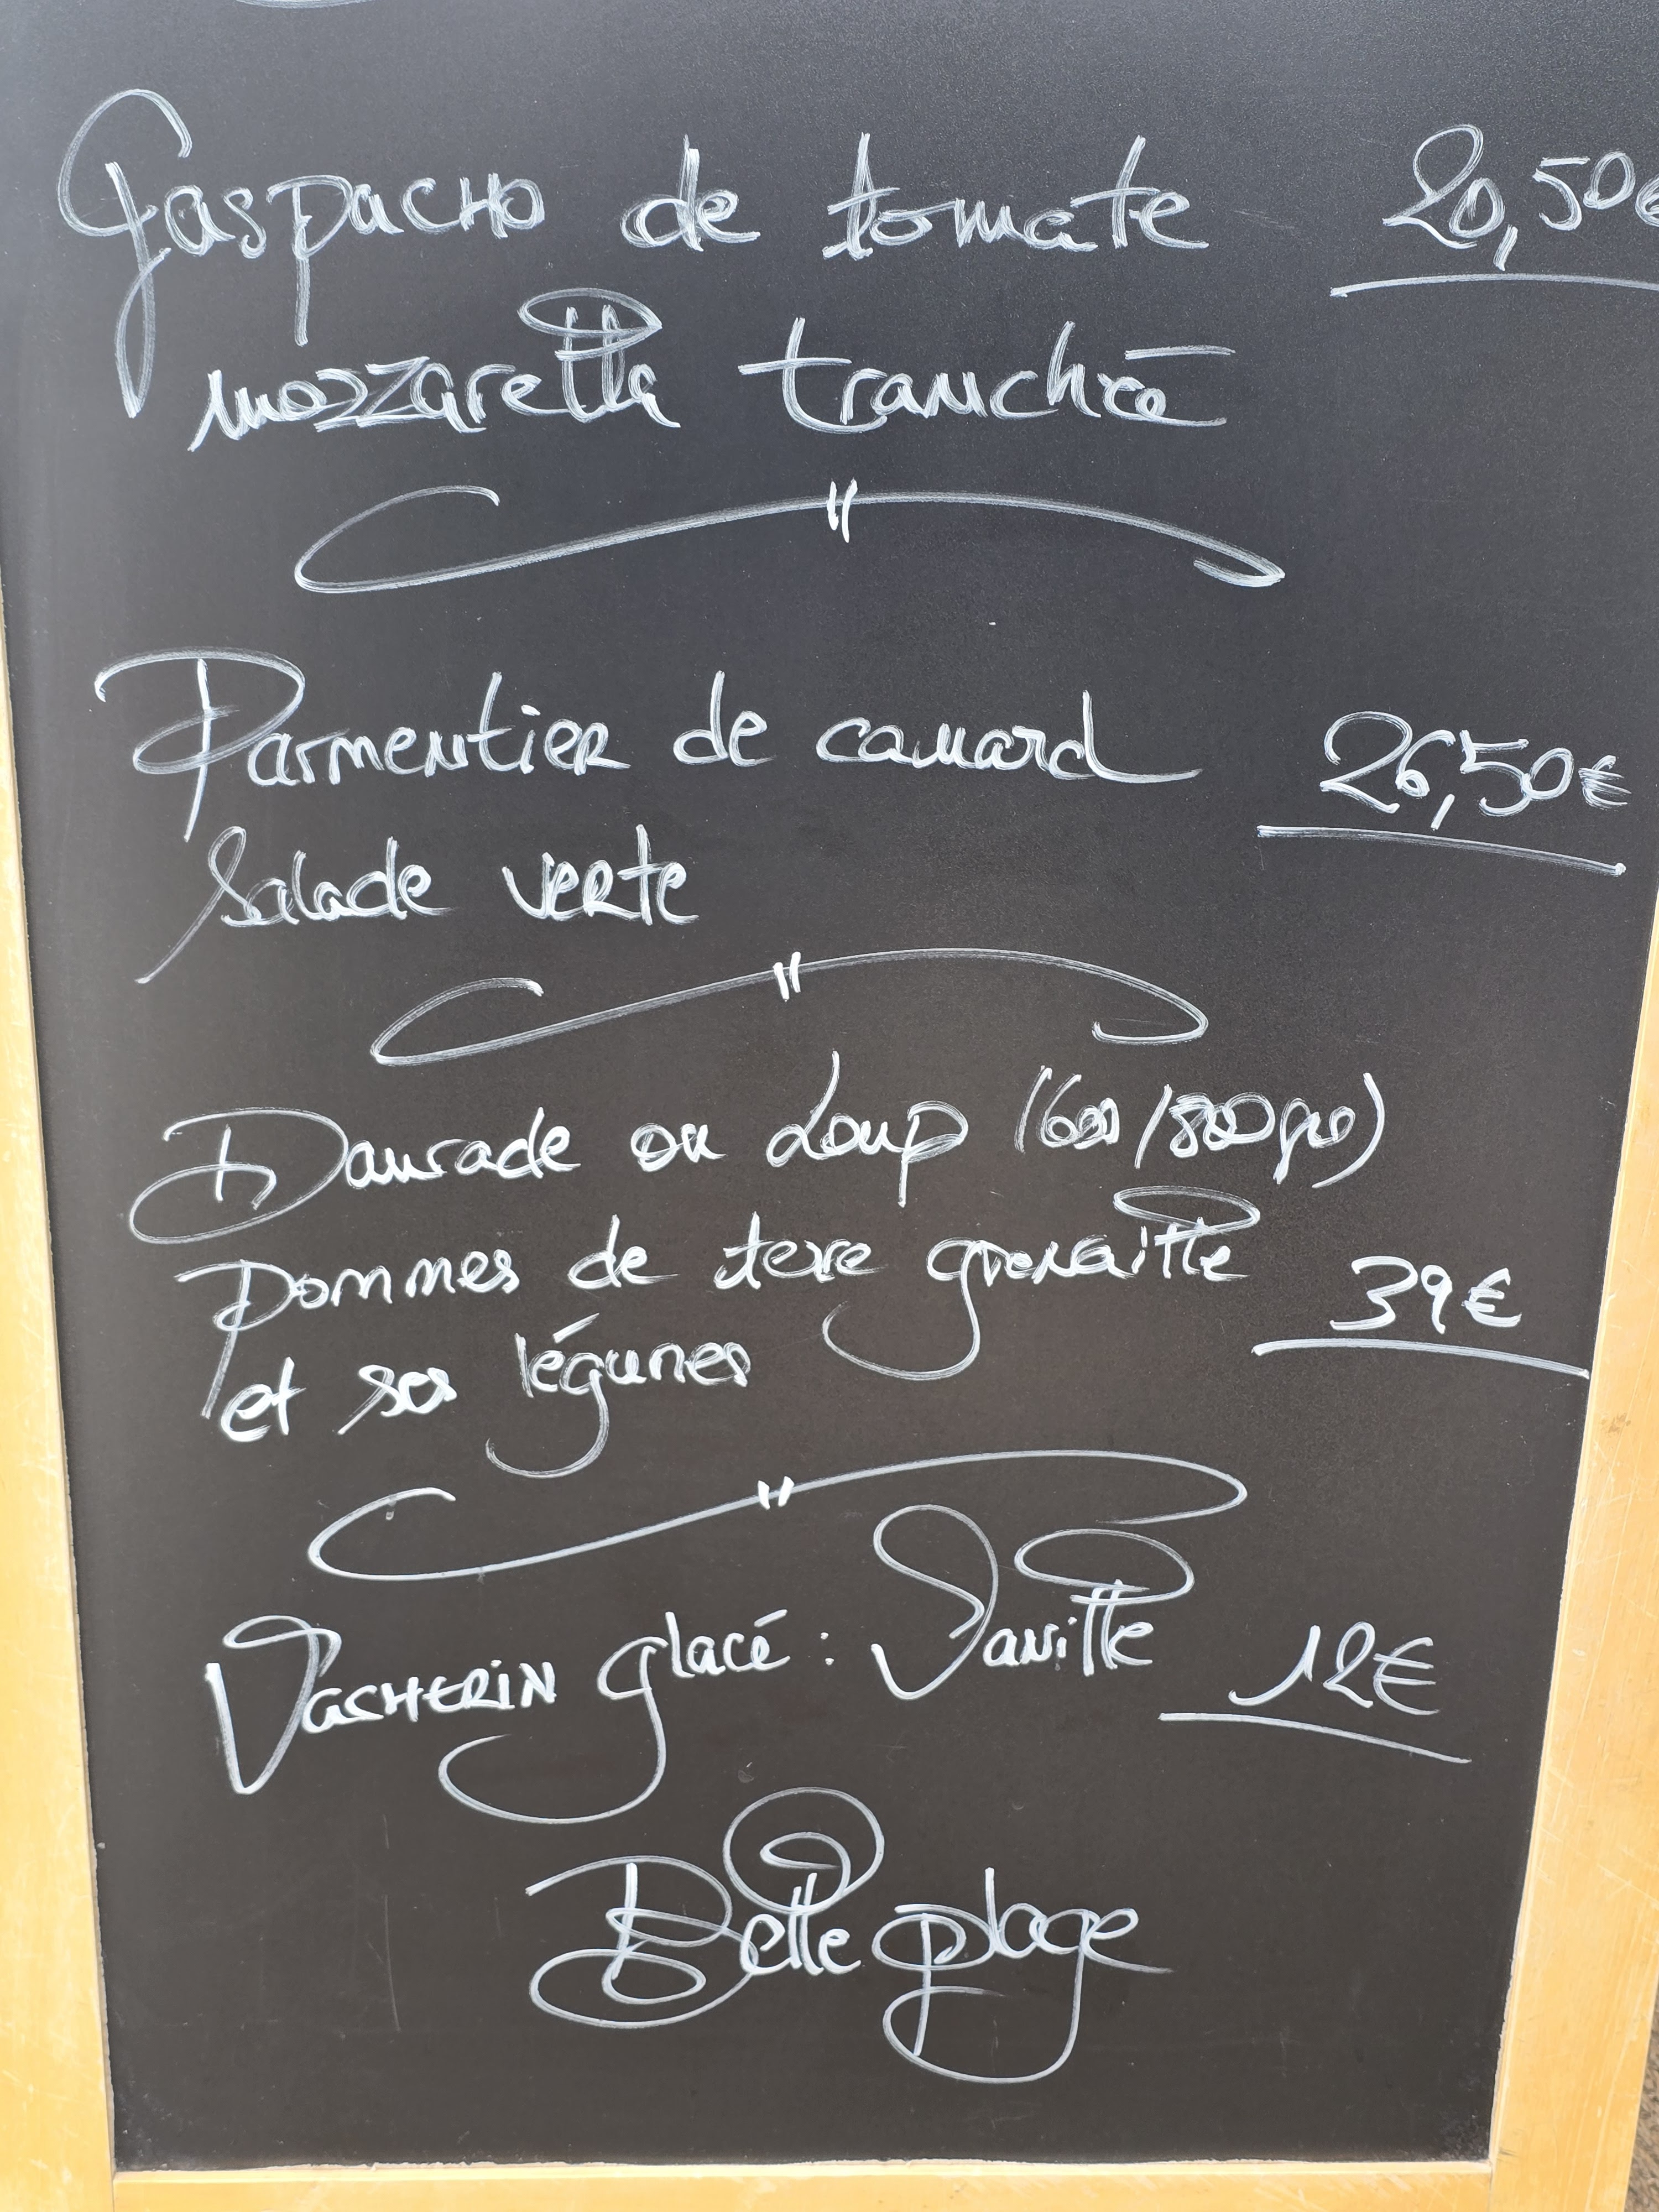 Gaspacho de tomate 20,50€
mozzarella tranchée
Parmentier de canard 26,50€
Salade verte
Daurade ou Loup (600/800grs)
Pommes de terre grenaille 39€
et ses légumes
Vacherin glacé : Vanille 12€
Belle plage